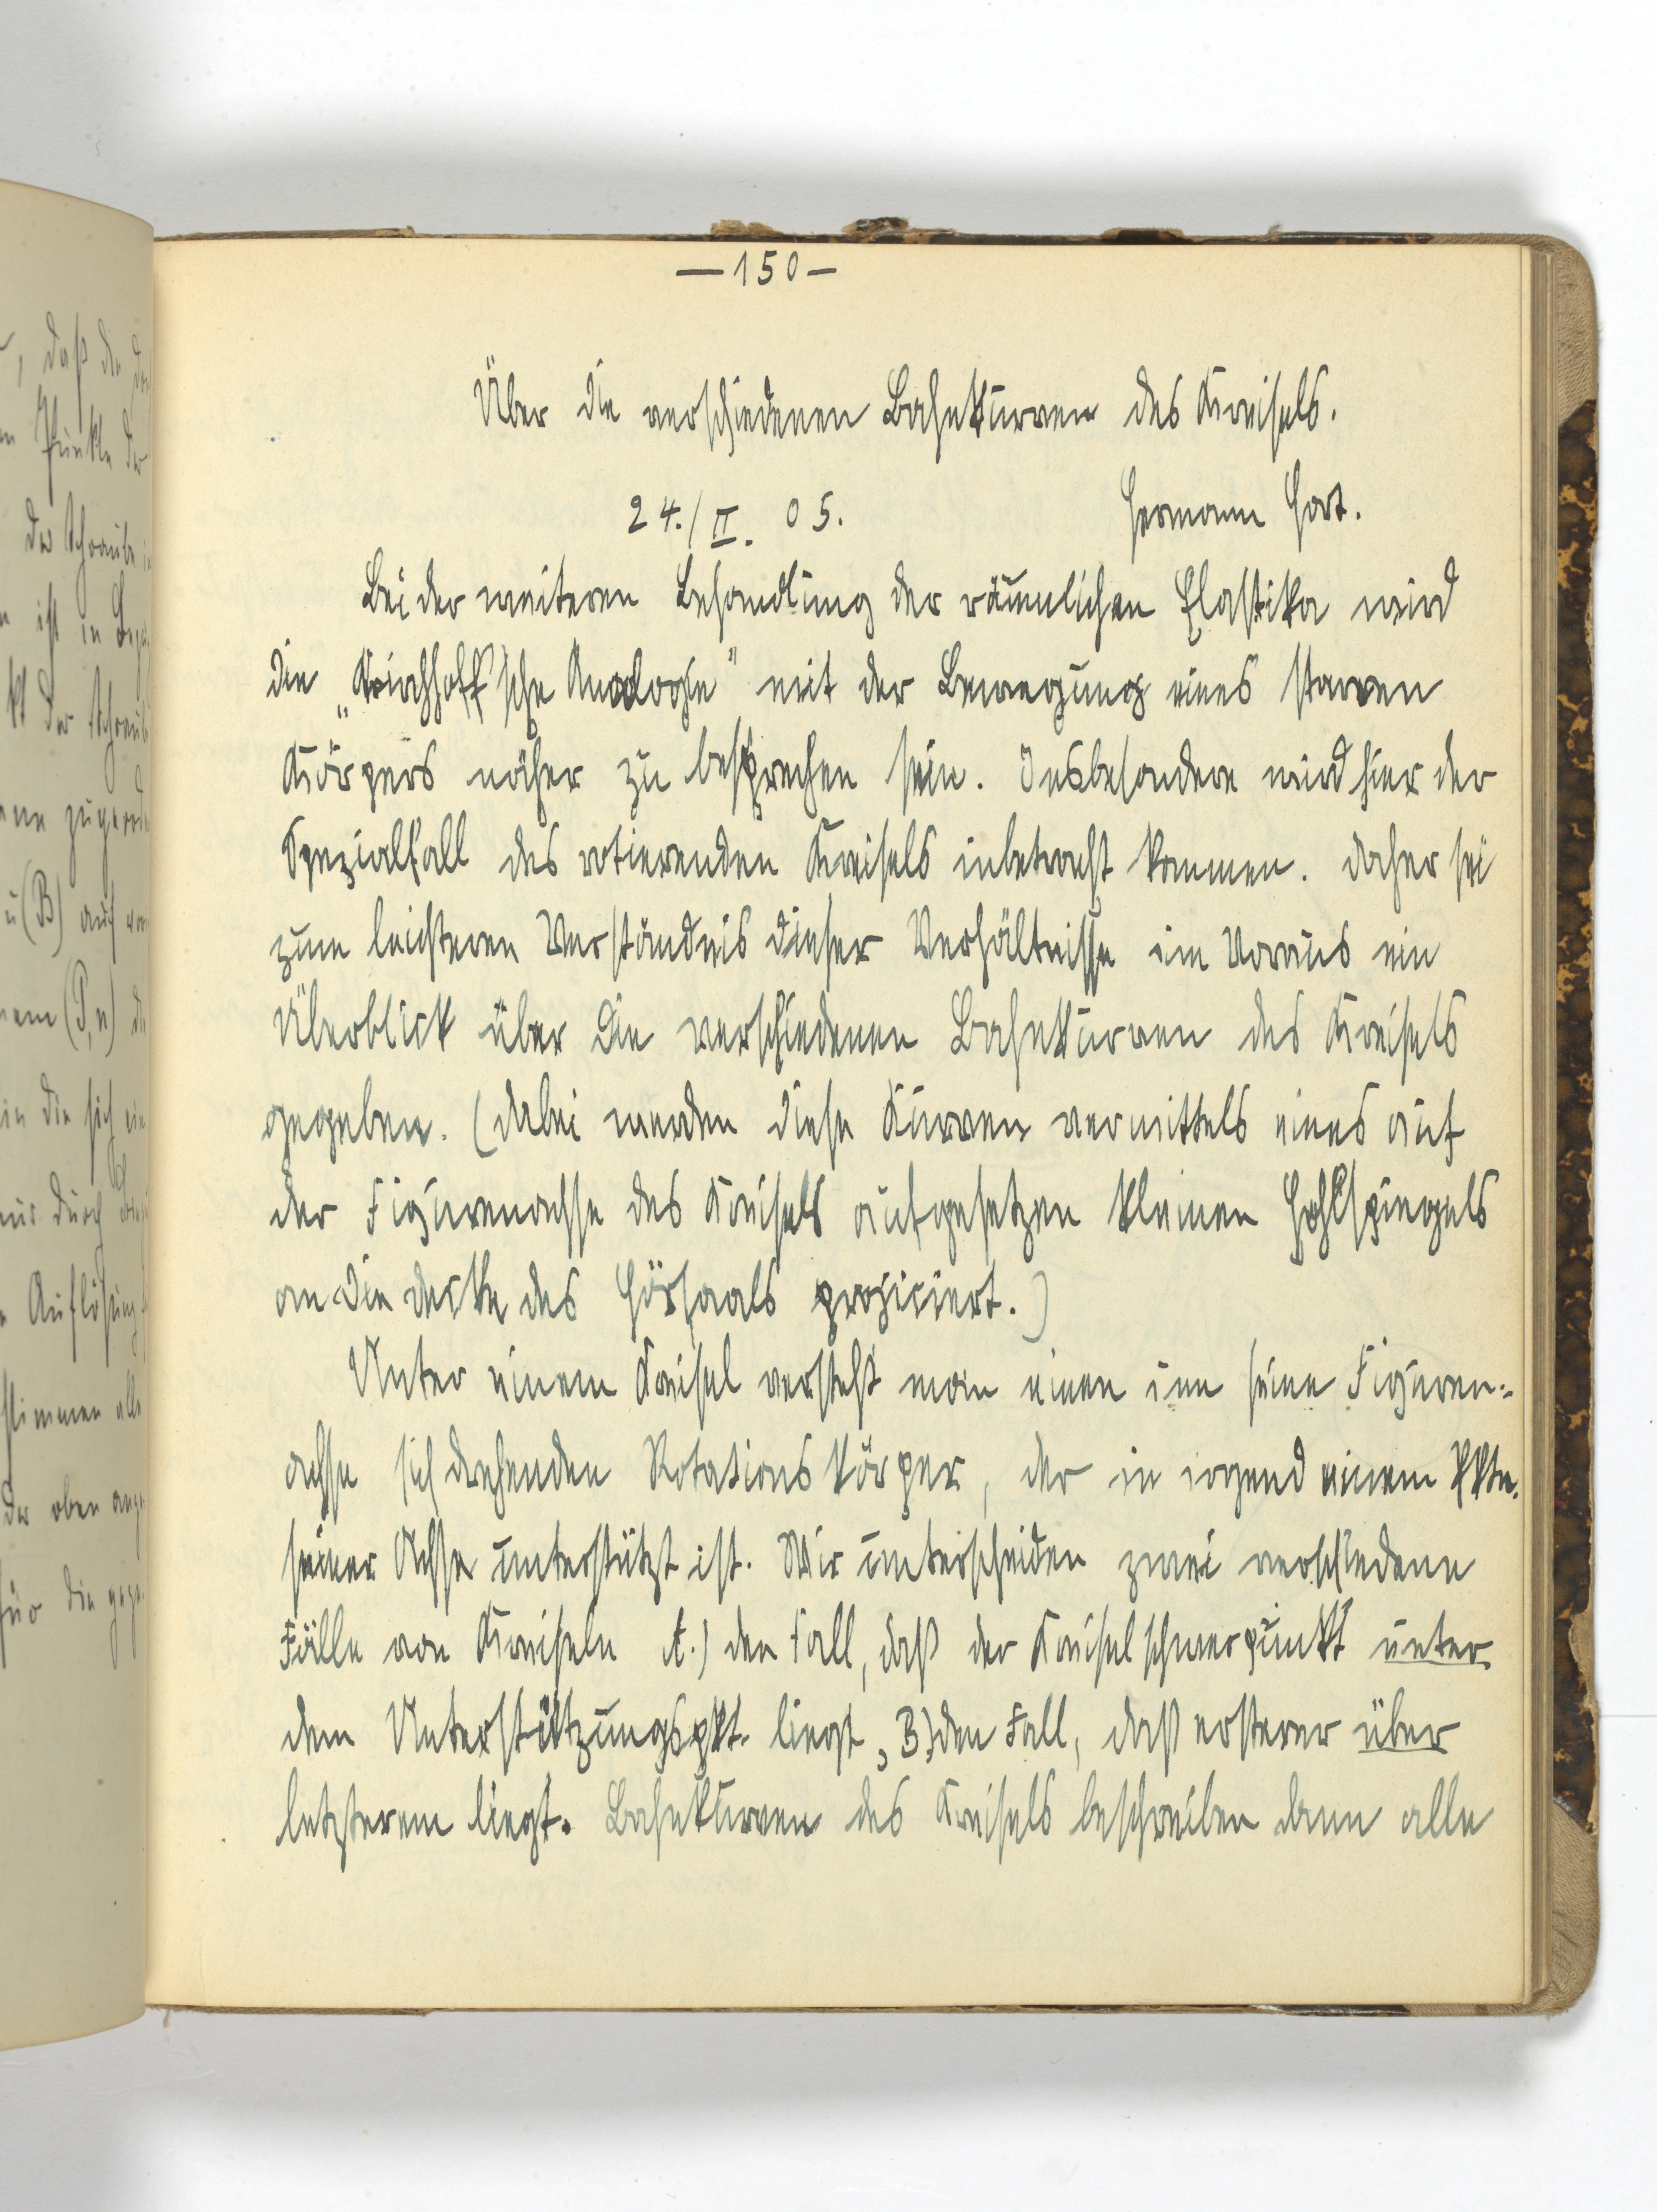 —150—
Über die verschiedenen Bahnkurven des Kreisels.
24./II. 05. Hermann Hart.
Bei der weiteren Behandlung der räumlichen Elastika wird
die „Kirchhoff'sche Analogie" mit der Bewegung eines starren
Körpers näher zu besprechen sein. Insbesondere wird hier der
Spezialfall des rotierenden Kreisels inbetracht kommen. Daher sei
zum leichteren Verständnis dieser Verhältnisse im Voraus ein
Überblick über die verschiedenen Bahnkurven des Kreisels
gegeben. (Dabei werden diese Kurven vermittels eines auf
der Figurenachse des Kreisels aufgesetzen kleinen Hohlspiegels
an die Decke des Hörsaals projiciert.)
Unter einem Kreisel versteht man einen um seine Figuren-
achse sich drehenden Rotationskörper, der in irgend einem Pkte.
seiner Achse unterstützt ist. Wir unterscheiden zwei verschiedene
Fälle von Kreiseln A.) den Fall, daß der Kreiselschwerpunkt unter
dem Unterstützungspkt. liegt, B.) den Fall, daß ersterer über
letzterem liegt. Bahnkurven des Kreisels beschreiben dann alle
, daß die
Punkte der
der Schraube
ist in
der Schraub
u (B) auf
(P, n) die
in die sich
nur durch
Auflösung
stimmen alle
der oben ange
für die gege